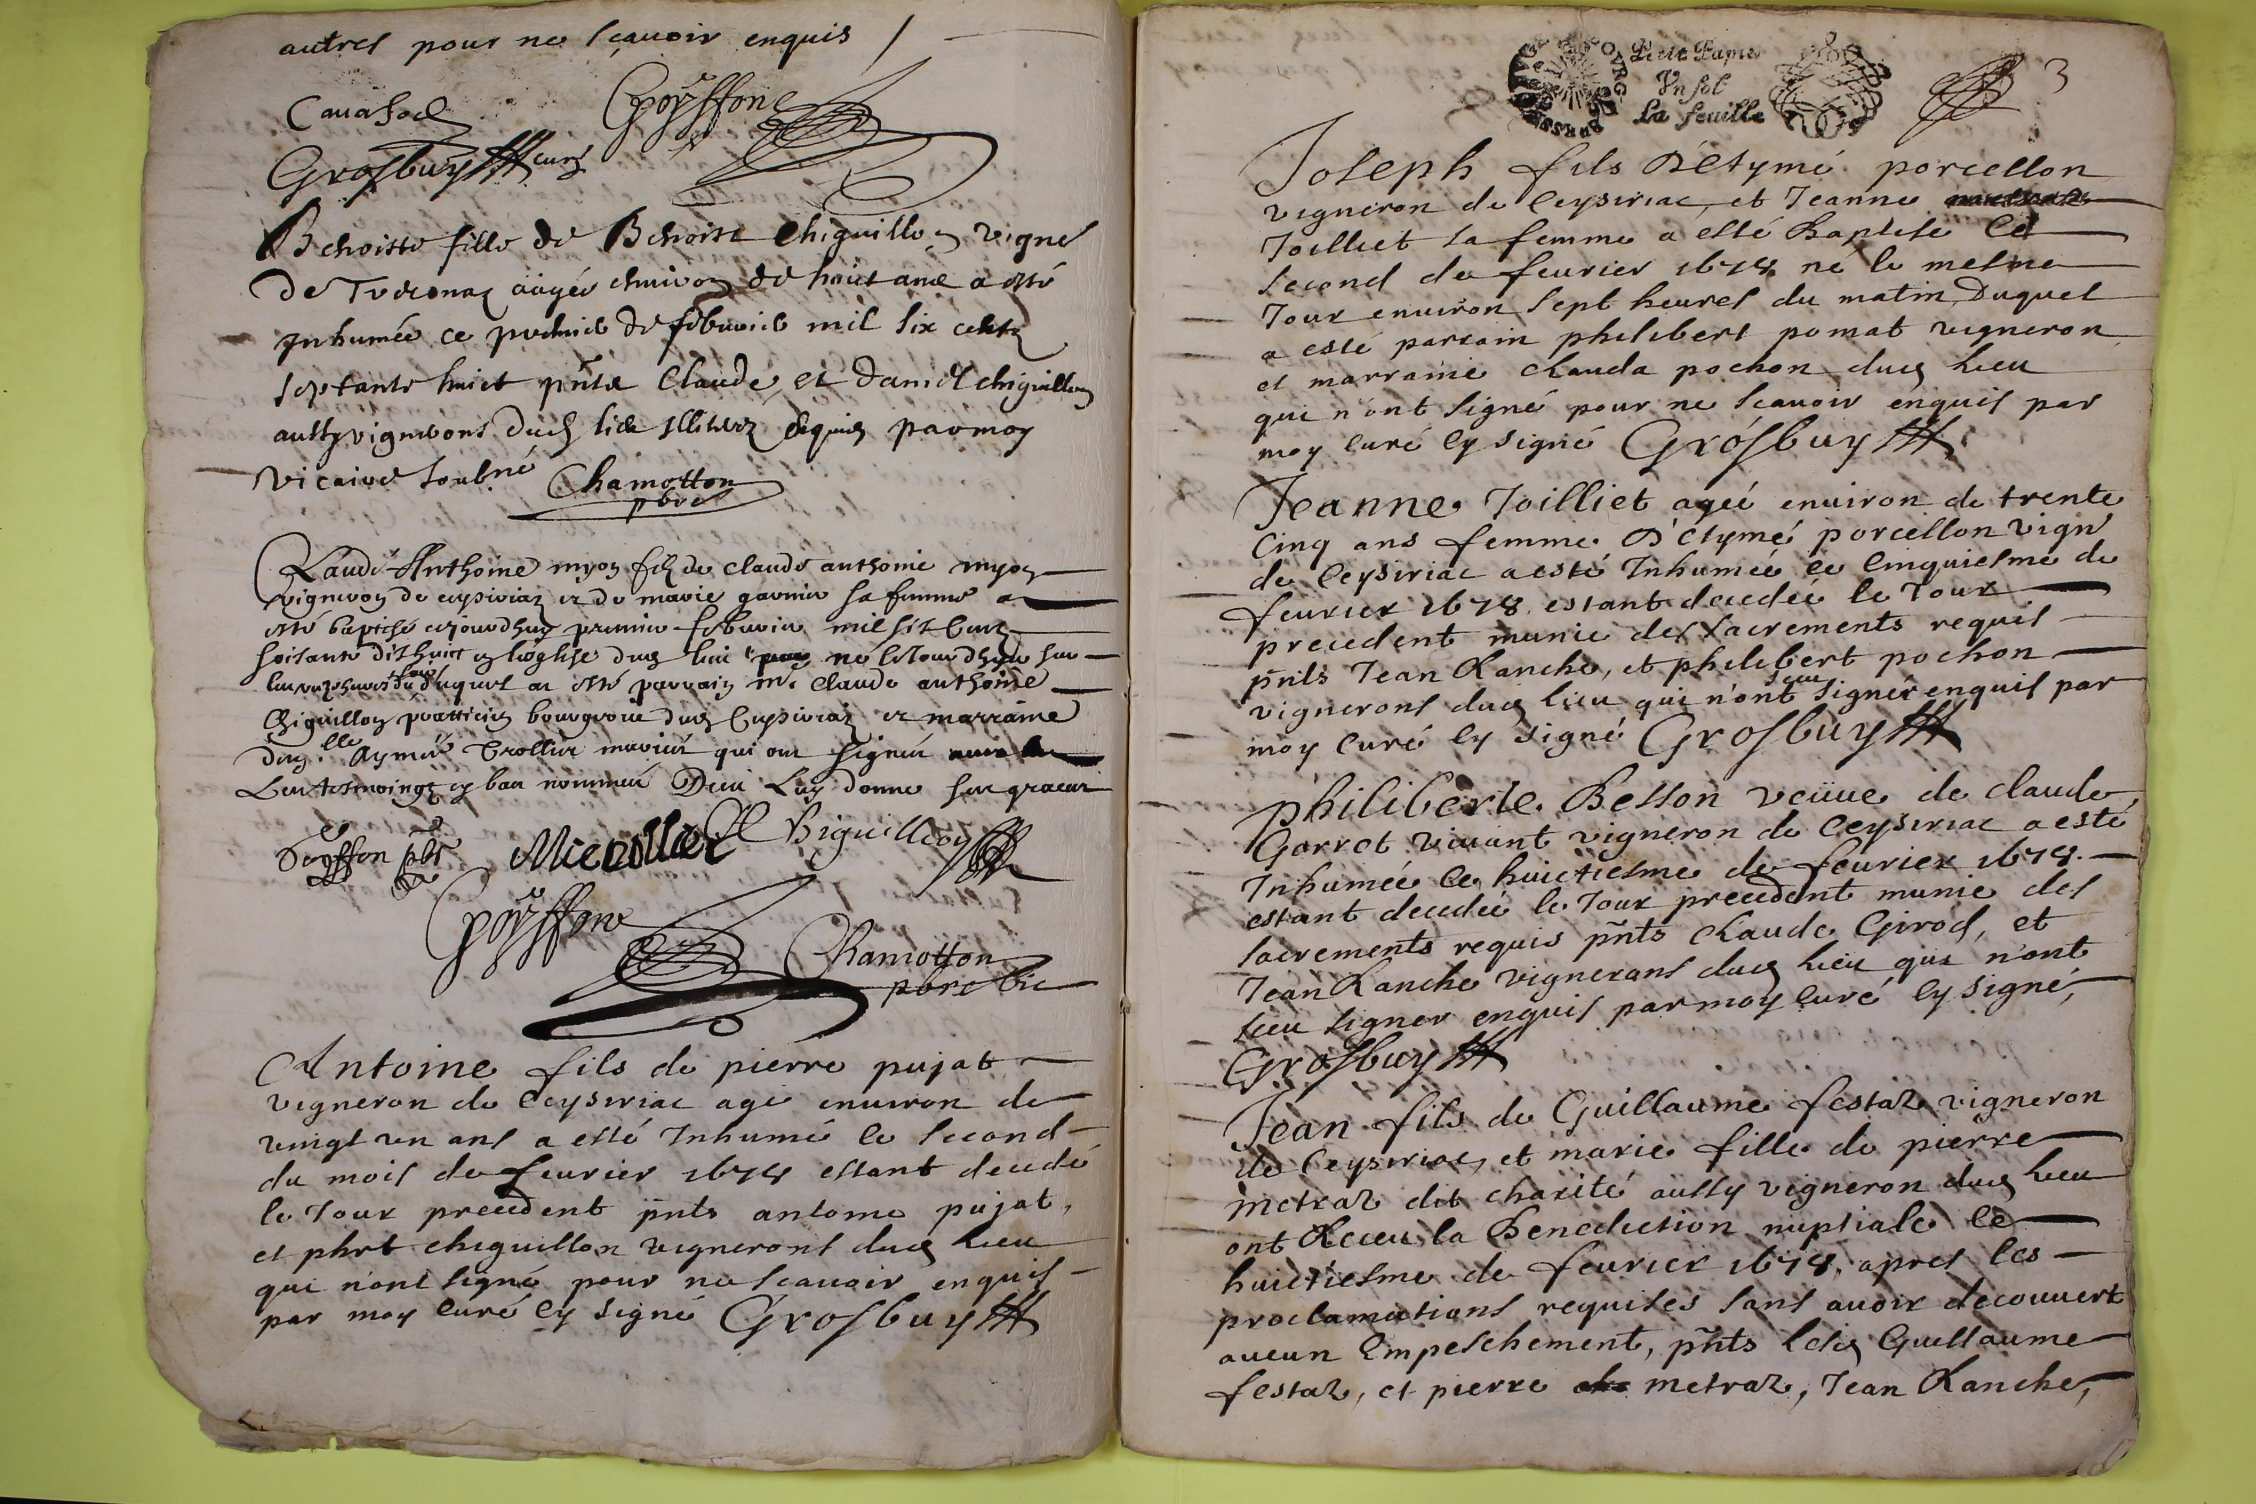 autres pour ne sçavoir enquis /
Cauasod
Goÿffon
Grosbuy curé
Benoiste fille de Benoist Chiguillon vigner
de Treconaz aagée enuiron de huict ans a esté
inhumée ce premier de febvrier mil six cents
septante huict pnts Claude et Daniel chiguillon
aussy vignerons dud lieu illiterez enquis par moy
vicaire soubné Chamotton
pbre
Claude Anthoine myon filz de claude anthoine myon
vigneron de ceysiriaz et de marie garnier sa femme a
esté baptisé ce jourdhuy premier febvrier mil six cent
soisante dixhuict en leglise dud lieu né le Jour dhyer sur
duquel a esté parrain mr claude anthoine
Chiguillon pratticien bourgeois dud Ceysiriaz et marraine
dlle Aymée Trollier qui ont signéz
Les tesmoingz cy bas nommés Dieu Luy donne ses graces
Goÿffon pbr
C A Chiguillon
Goÿffon
Chamotton
pbre vic
Antoine fils de pierre pujat
vigneron de Ceysiriac agé enuiron de
vingt un ans a esté Inhumé le second
du mois de feurier 1678 estant decedé
le Jour precedent pnts antoine pujat,
et phrt chiguillon vignerons dud lieu
qui n'ont signé pour ne scauoir enquis
par moy curé cy signé Grosbuy
Petit Papier
Vn sol
La feuille
3
Joseph fils D'Etymé porcellon
vigneron de Ceysiriac, et Jeanne
Joilliet sa femme a esté Baptisé Ce
second de feurier 1678. né le mesme
Jour enuiron sept heures du matin, Duquel
a esté parrain philibert pomat vigneron
et marraine Clauda pochon dud lieu
qui n'ont signé pour ne scauoir enquis par
moy Curé Cy signé Grosbuy
Jeanne Joilliet ageé enuiron de trente
Cinq ans femme D'Etymé porcellon vigñ
de Ceysiriac a esté Inhumeé ce Cinquiesme de
feurier 1678 estant decedée le Jour
precedent munie des sacrements requis
pñts Jean Ranche, et philibert pochon
vignerons dud lieu qui n'ont sceu signer enquis par
moy Curé Cy signé Grosbuy
philiberte Besson veüue de claude
Garret viuant vigneron de Ceysiriac a esté
Inhumée Ce huictiesme de feurier 1678.
estant decedée le Jour precedent munie des
sacrements requis pñts Claude Girod, et
Jean Ranche vignerons dud lieu qui n'ont
sceu signer enquis par moy Curé Cy signé,
Grosbuy
Jean fils de Guillaume festaz vigneron
de Ceysiriac, et marie fille de pierre
metraz dit charité aussy vigneron dud lieu
ont Receu la Benediction nuptiale Ce
huictiesme de feurier 1678. apres les
proclamations requises sans auoir decouuert
aucun Empeschement, pñts lesd Guillaume
festaz, et pierre metraz, Jean Ranche,